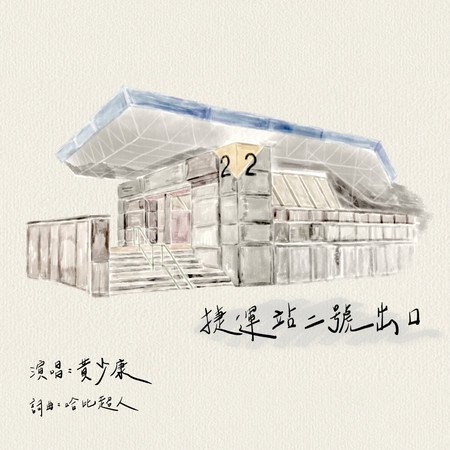 22
捷運站二號出口
演唱：黃少康
詞曲：哈比超人